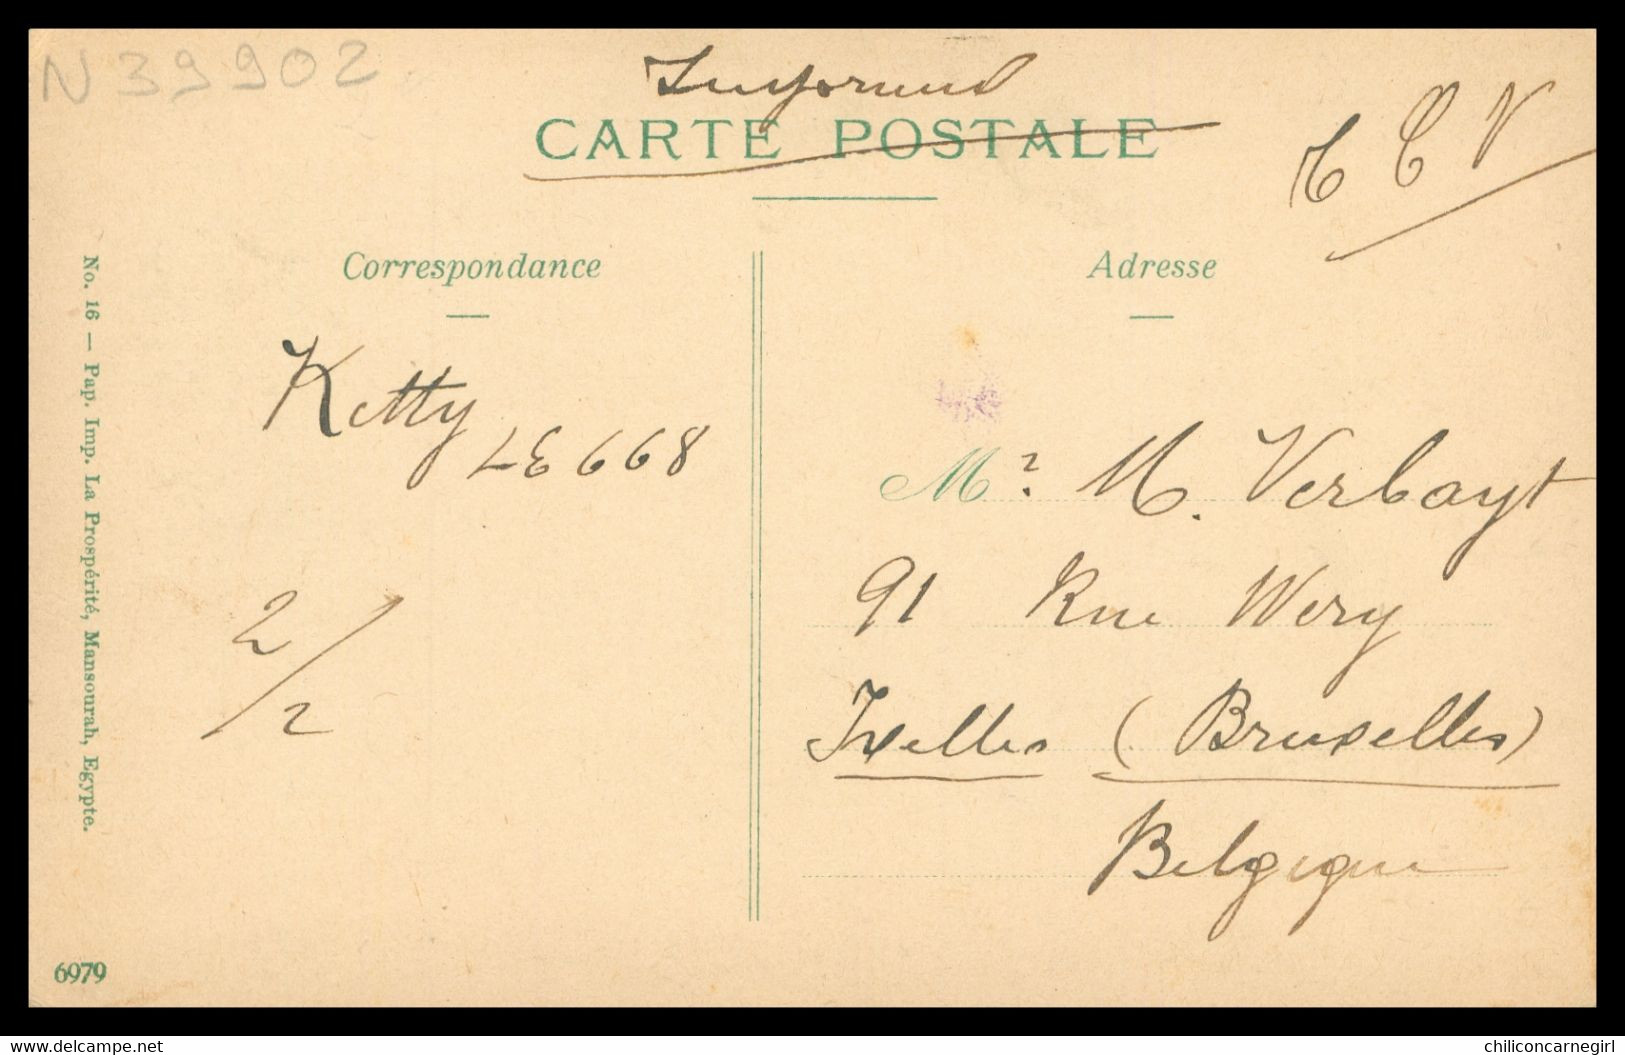 N 39902
CARTE POSTALE
T C V
Correspondance
Adresse
Ketty
LE 6 6 8
2/2
Mr. M. Verbayst
91 Rue Wery
Ixelles (Bruxelles)
Belgique
No. 16 — Pap. Imp. La Prospérité, Mansourah, Egypte.
6979
www.delcampe.net
chiliconcarnegirl